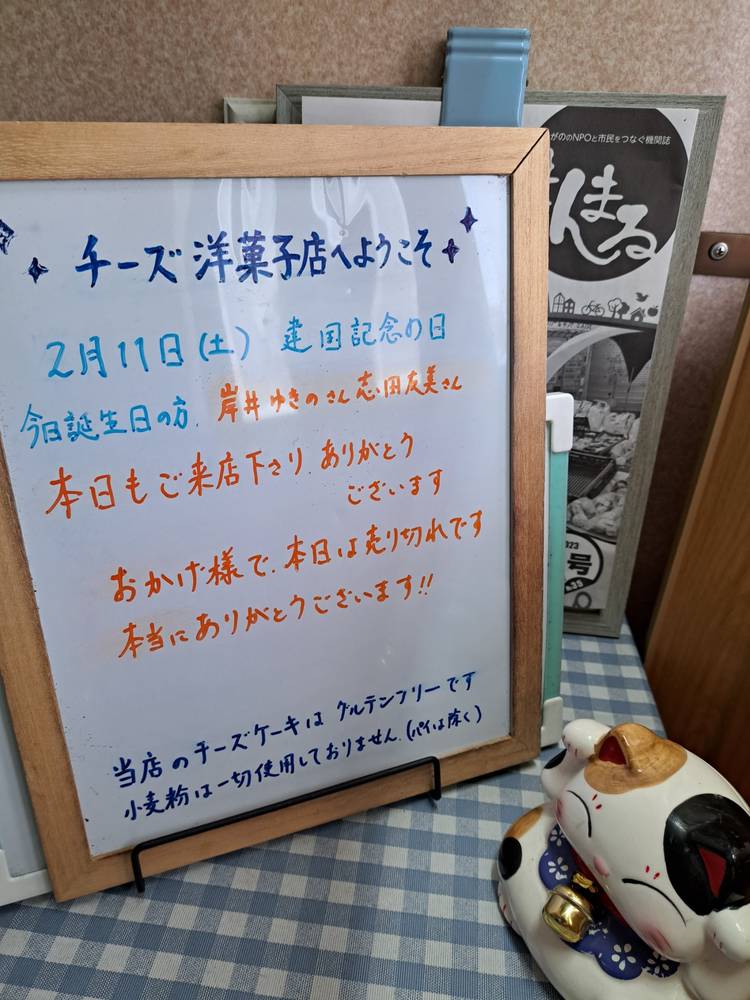 チーズ洋菓子店へようこそ
2月11日(土) 建国記念の日
今日誕生日の方、岸井ゆきのさん 志田友美さん
本日もご来店下さり、ありがとう
ございます
おかげ様で、本日は売り切れです
本当にありがとうございます!!
当店のチーズケーキは グルテンフリーです
小麦粉は一切使用しておりません。(パイは除く)
がののNPOと市民をつなぐ機関誌
んまる
号